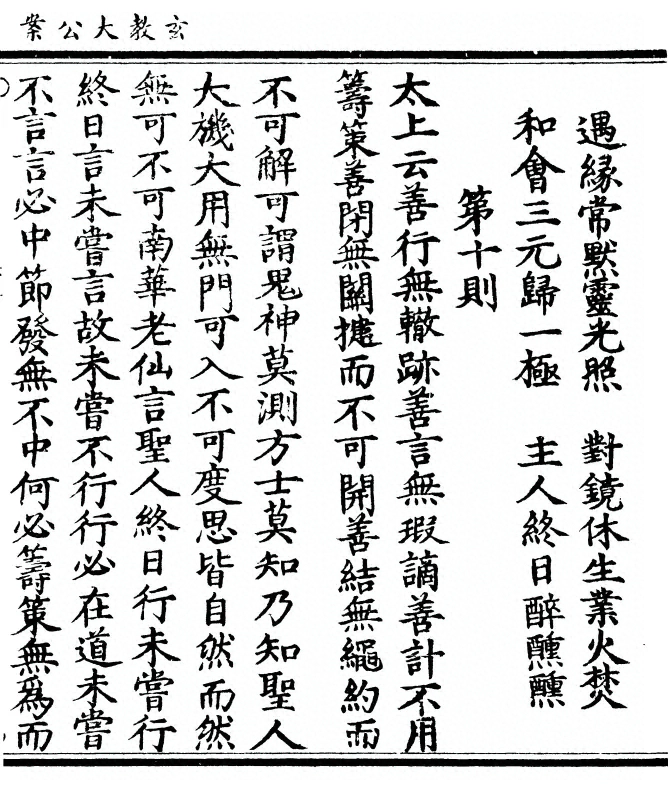 玄教大公案
遇緣常默靈光照　對鏡休生業火焚
和會三元歸一極　主人終日醉醺醺
第十則
太上云善行無轍跡善言無瑕讁善計不用
籌策善閉無關揵而不可開善結無繩約而
不可解可謂鬼神莫測方士莫知乃知聖人
大機大用無門可入不可度思皆自然而然
無可不可南華老仙言聖人終日行未嘗行
終日言未嘗言故未嘗不行行必在道未嘗
不言言必中節發無不中何必籌策無爲而